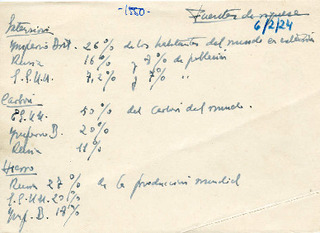 -1880-
Fuentes de riqueza
6/2/24
Extensión
Imperio Brit. 26% de los habitantes del mundo en extensión
Rusia 16% y 8% de población
EE.UU. 7,2% y 7% "
Carbón
EE.UU. 50% del carbón del mundo.
Imperio B. 20%
Rusia 11%
Hierro
Rusia 27% de la producción mundial
EE.UU. 20%
Imp. B. 18%